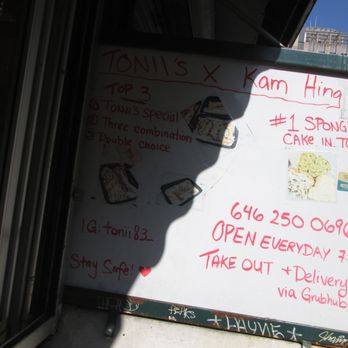 TONII'S X Kam Hing
TOP 3
① TONII'S special
② Three combination
③ Double choice
#1 SPONG
CAKE IN TO
IG: tonii83_
Stay Safe!
646 250 0696
OPEN EVERYDAY 7:
TAKE OUT + Delivery
via Grubhub